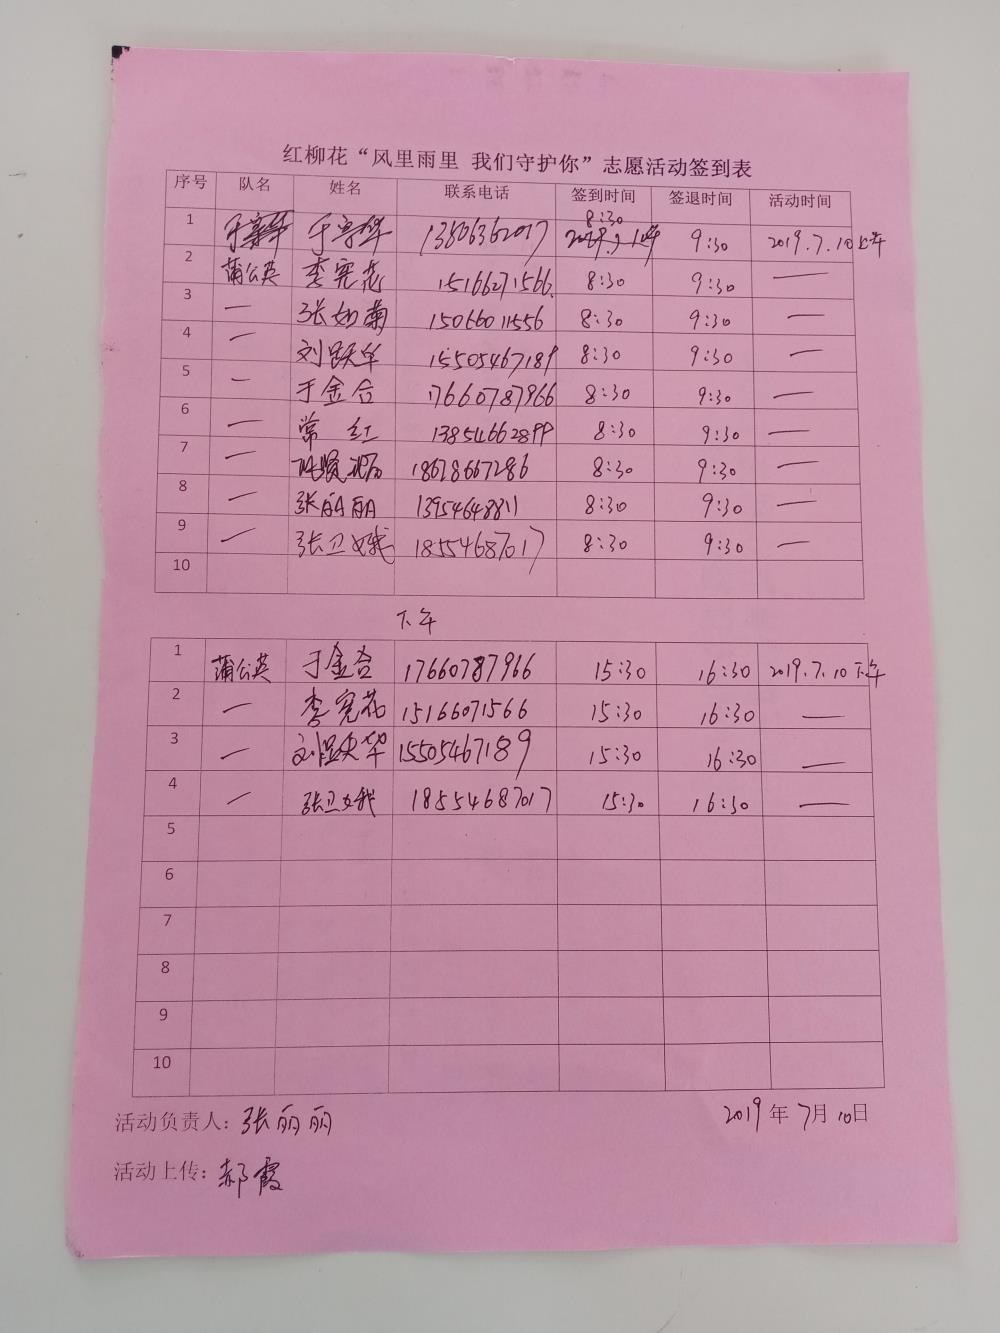 红柳花“风里雨里 我们守护你”志愿活动签到表
序号 队名 姓名 联系电话 签到时间 签退时间 活动时间
1 13806362017 8:30 9:30 2019.7.10上午
2 蒲公英 李宪花 15166271566 8:30 9:30 —
3 — 张如菊 15066011556 8:30 9:30 —
4 — 刘跃华 15505467189 8:30 9:30 —
5 — 于金合 17660787966 8:30 9:30 —
6 — 常红 13854662899 8:30 9:30 —
7 — 18678667286 8:30 9:30 —
8 — 张丽丽 13954648811 8:30 9:30 —
9 — 张卫娥 18554687017 8:30 9:30 —
10
下午
1 蒲公英 于金合 17660787966 15:30 16:30 2019.7.10下午
2 — 李宪花 15166071566 15:30 16:30 —
3 — 刘跃华 15505467189 15:30 16:30 —
4 — 张卫娥 18554687017 15:30 16:30 —
5
6
7
8
9
10
活动负责人：张丽丽 2019年7月10日
活动上传：郝霞